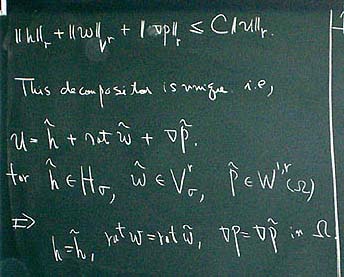 ‖h‖_r + ‖w‖_{V^r} + ‖∇p‖_r ≤ C‖u‖_r.
This decomposition is unique i.e,
u = h̃ + rot w̃ + ∇p̃.
for h̃ ∈ H_σ, w̃ ∈ V_σ^r, p̃ ∈ W^{1,r}(Ω)
⇒
h = h̃, rot w = rot w̃, ∇p = ∇p̃ in Ω